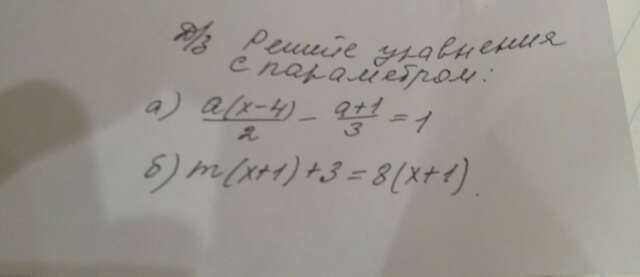 Д/з Решите уравнения
с параметром:
а) a(x-4)/2 - a+1/3 = 1
б) m(x+1)+3=8(x+1).